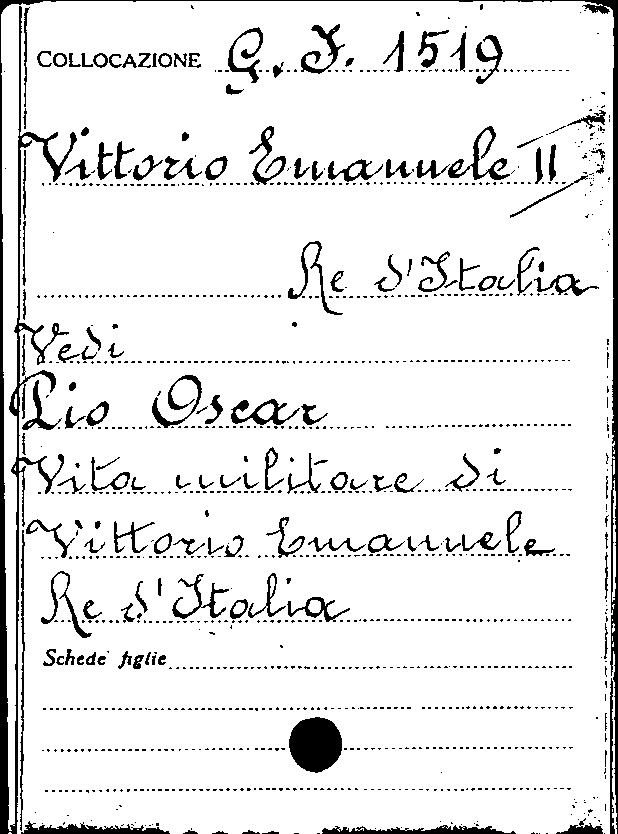 COLLOCAZIONE G. I. 1519
Vittorio Emanuele II
Re d'Italia
Vedi
Pio Oscar
Vita militare di
Vittorio Emanuele
Re d'Italia
Schede figlie